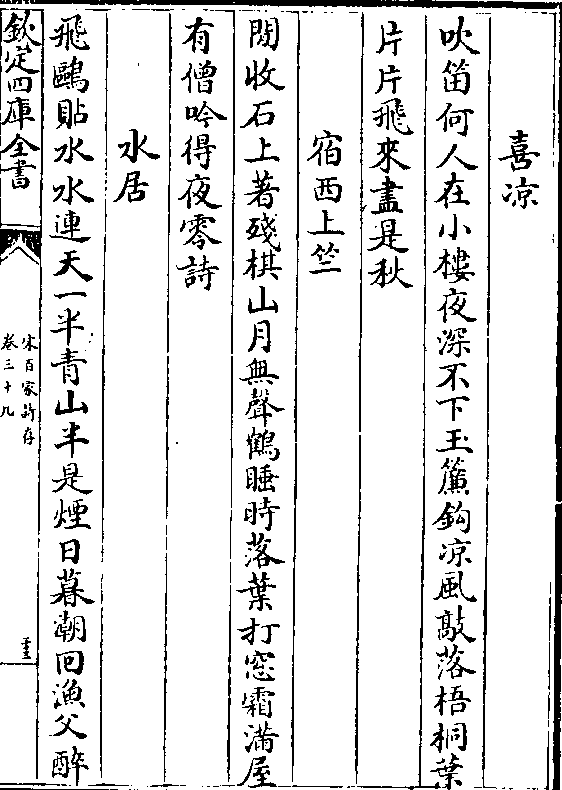 喜凉
吹笛何人在小樓夜深不下玉簾鈎凉風敲落梧桐葉
片片飛來盡是秋
宿西上竺
閒收石上著殘棋山月無聲鶴睡時落葉打窓霜滿屋
有僧吟得夜零詩
水居
飛鷗貼水水連天一半青山半是煙日暮潮回漁父醉
欽定四庫全書
宋百家詩存
卷三十九